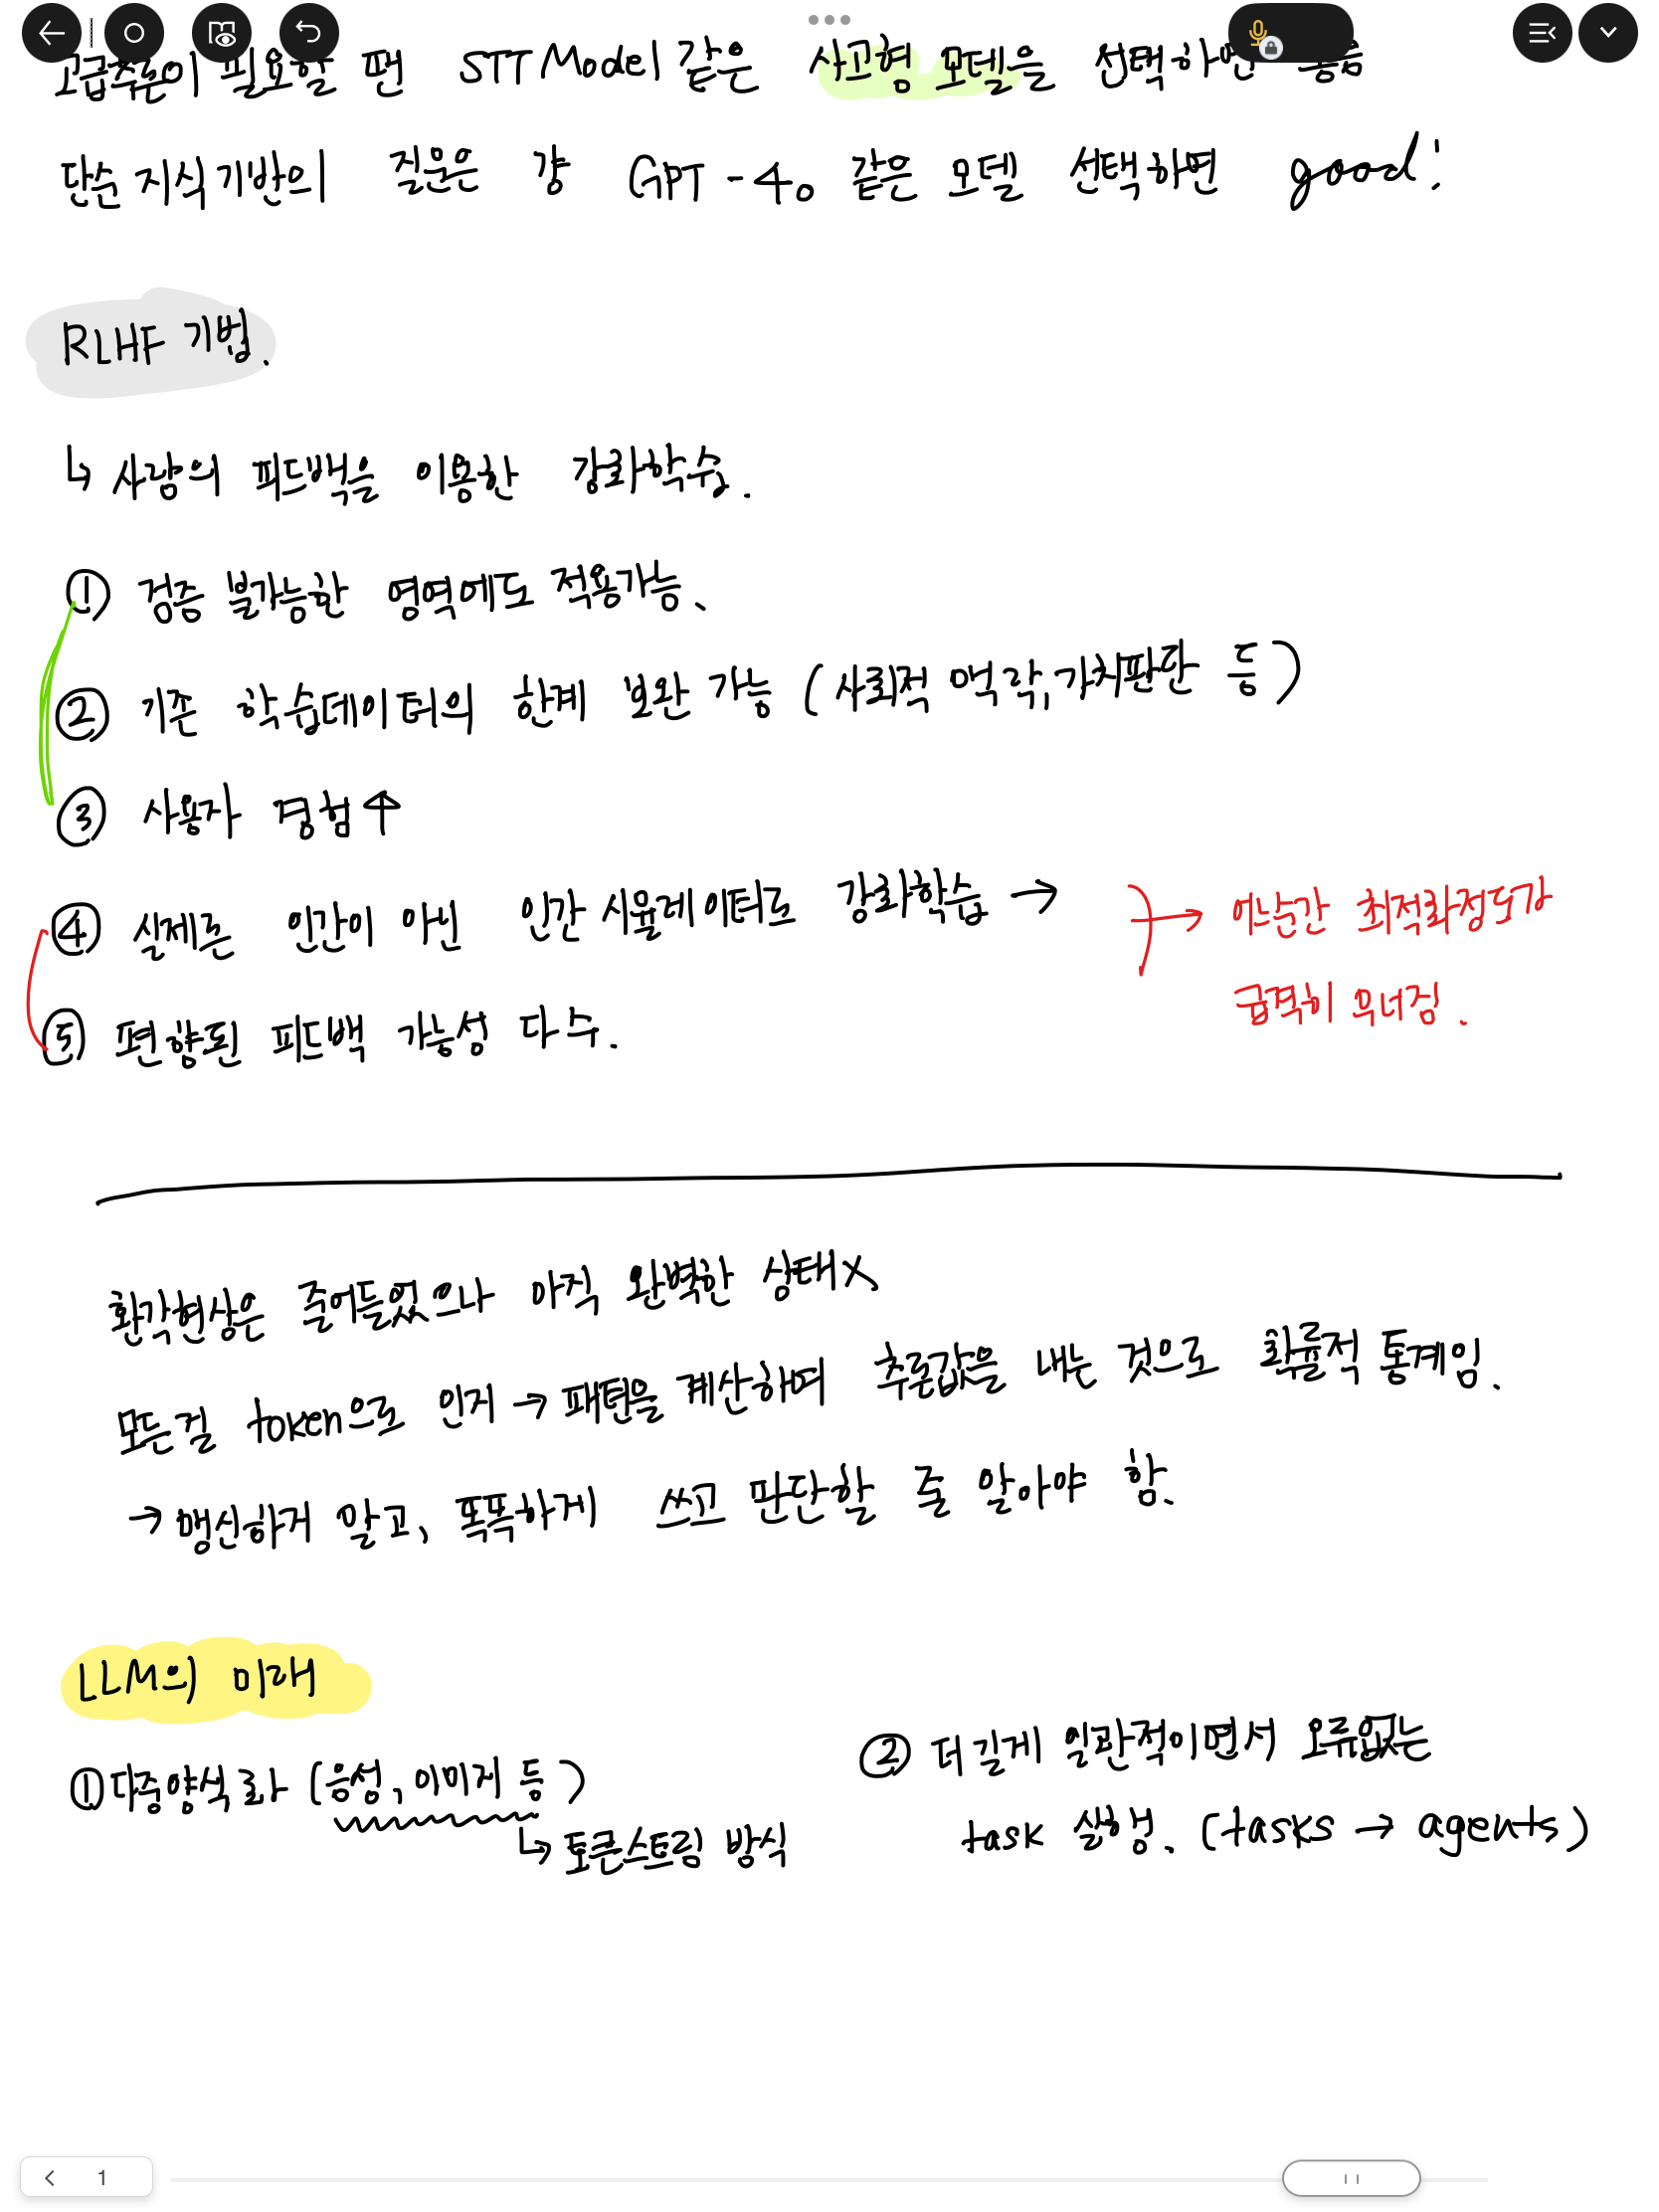 고급추론이 필요할 땐 STT Model 같은 사고형 모델을 선택하면 좋음
단순 지식기반의 질문은 걍 GPT-4o 같은 모델 선택하면 good!
RLHF 기법.
↳ 사람의 피드백을 이용한 강화학습.
① 검증 불가능한 영역에도 적용가능.
② 기존 학습데이터의 한계 보완 가능 (사회적 맥락, 가치판단 등)
③ 사용자 경험↑
④ 실제론 인간이 아닌 인간 시뮬레이터로 강화학습 →
→ 어느순간 최적화정도가
급격히 무너짐.
⑤ 편향된 피드백 가능성 다수.
환각현상은 줄어들었으나 아직 완벽한 상태X
모든걸 token으로 인지 → 패턴을 계산하여 추론값을 내는 것으로 확률적 통계임.
→ 맹신하게 말고, 똑똑하게 쓰고 판단할 줄 알아야 함.
LLM의 미래
① 다중양식화 (음성, 이미지 등)
↳ 토큰스트림 방식
② 더 길게 일관적이면서 오류없는
task 실행. (tasks → agents)
1